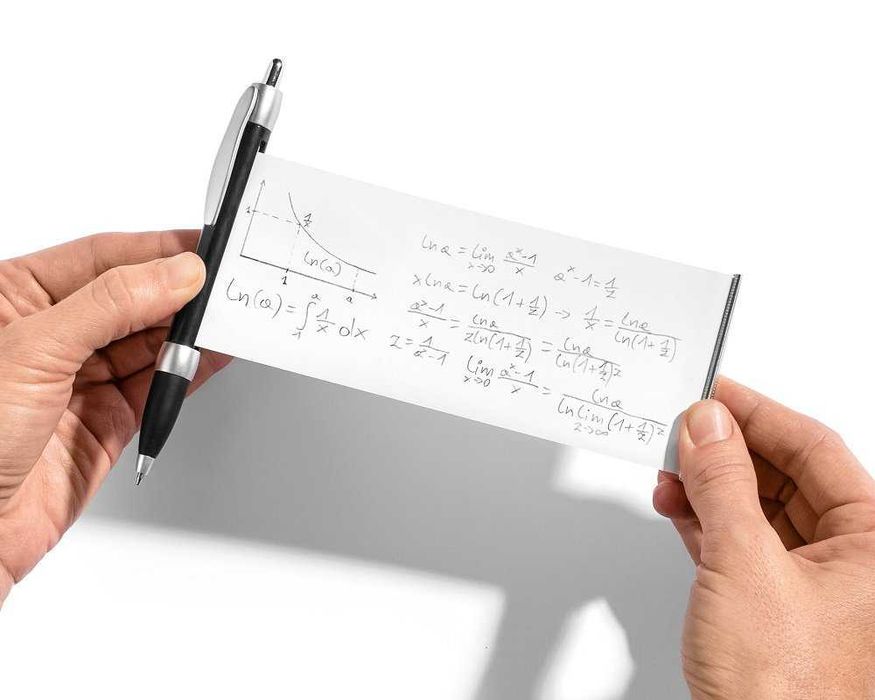 1
1/x
ln(a)
1 a
ln(a) = ∫₁ᵃ 1/x dx
ln a = lim x→0 (aˣ-1)/x aˣ-1 = 1/z
x ln a = ln(1+1/z) → 1/x = ln a / ln(1+1/z)
(aˣ-1)/x = ln a / z ln(1+1/z) = ln a / ln(1+1/z)ᶻ
z = 1/(aˣ-1)
lim x→0 (aˣ-1)/x = ln a / ln lim z→∞ (1+1/z)ᶻ